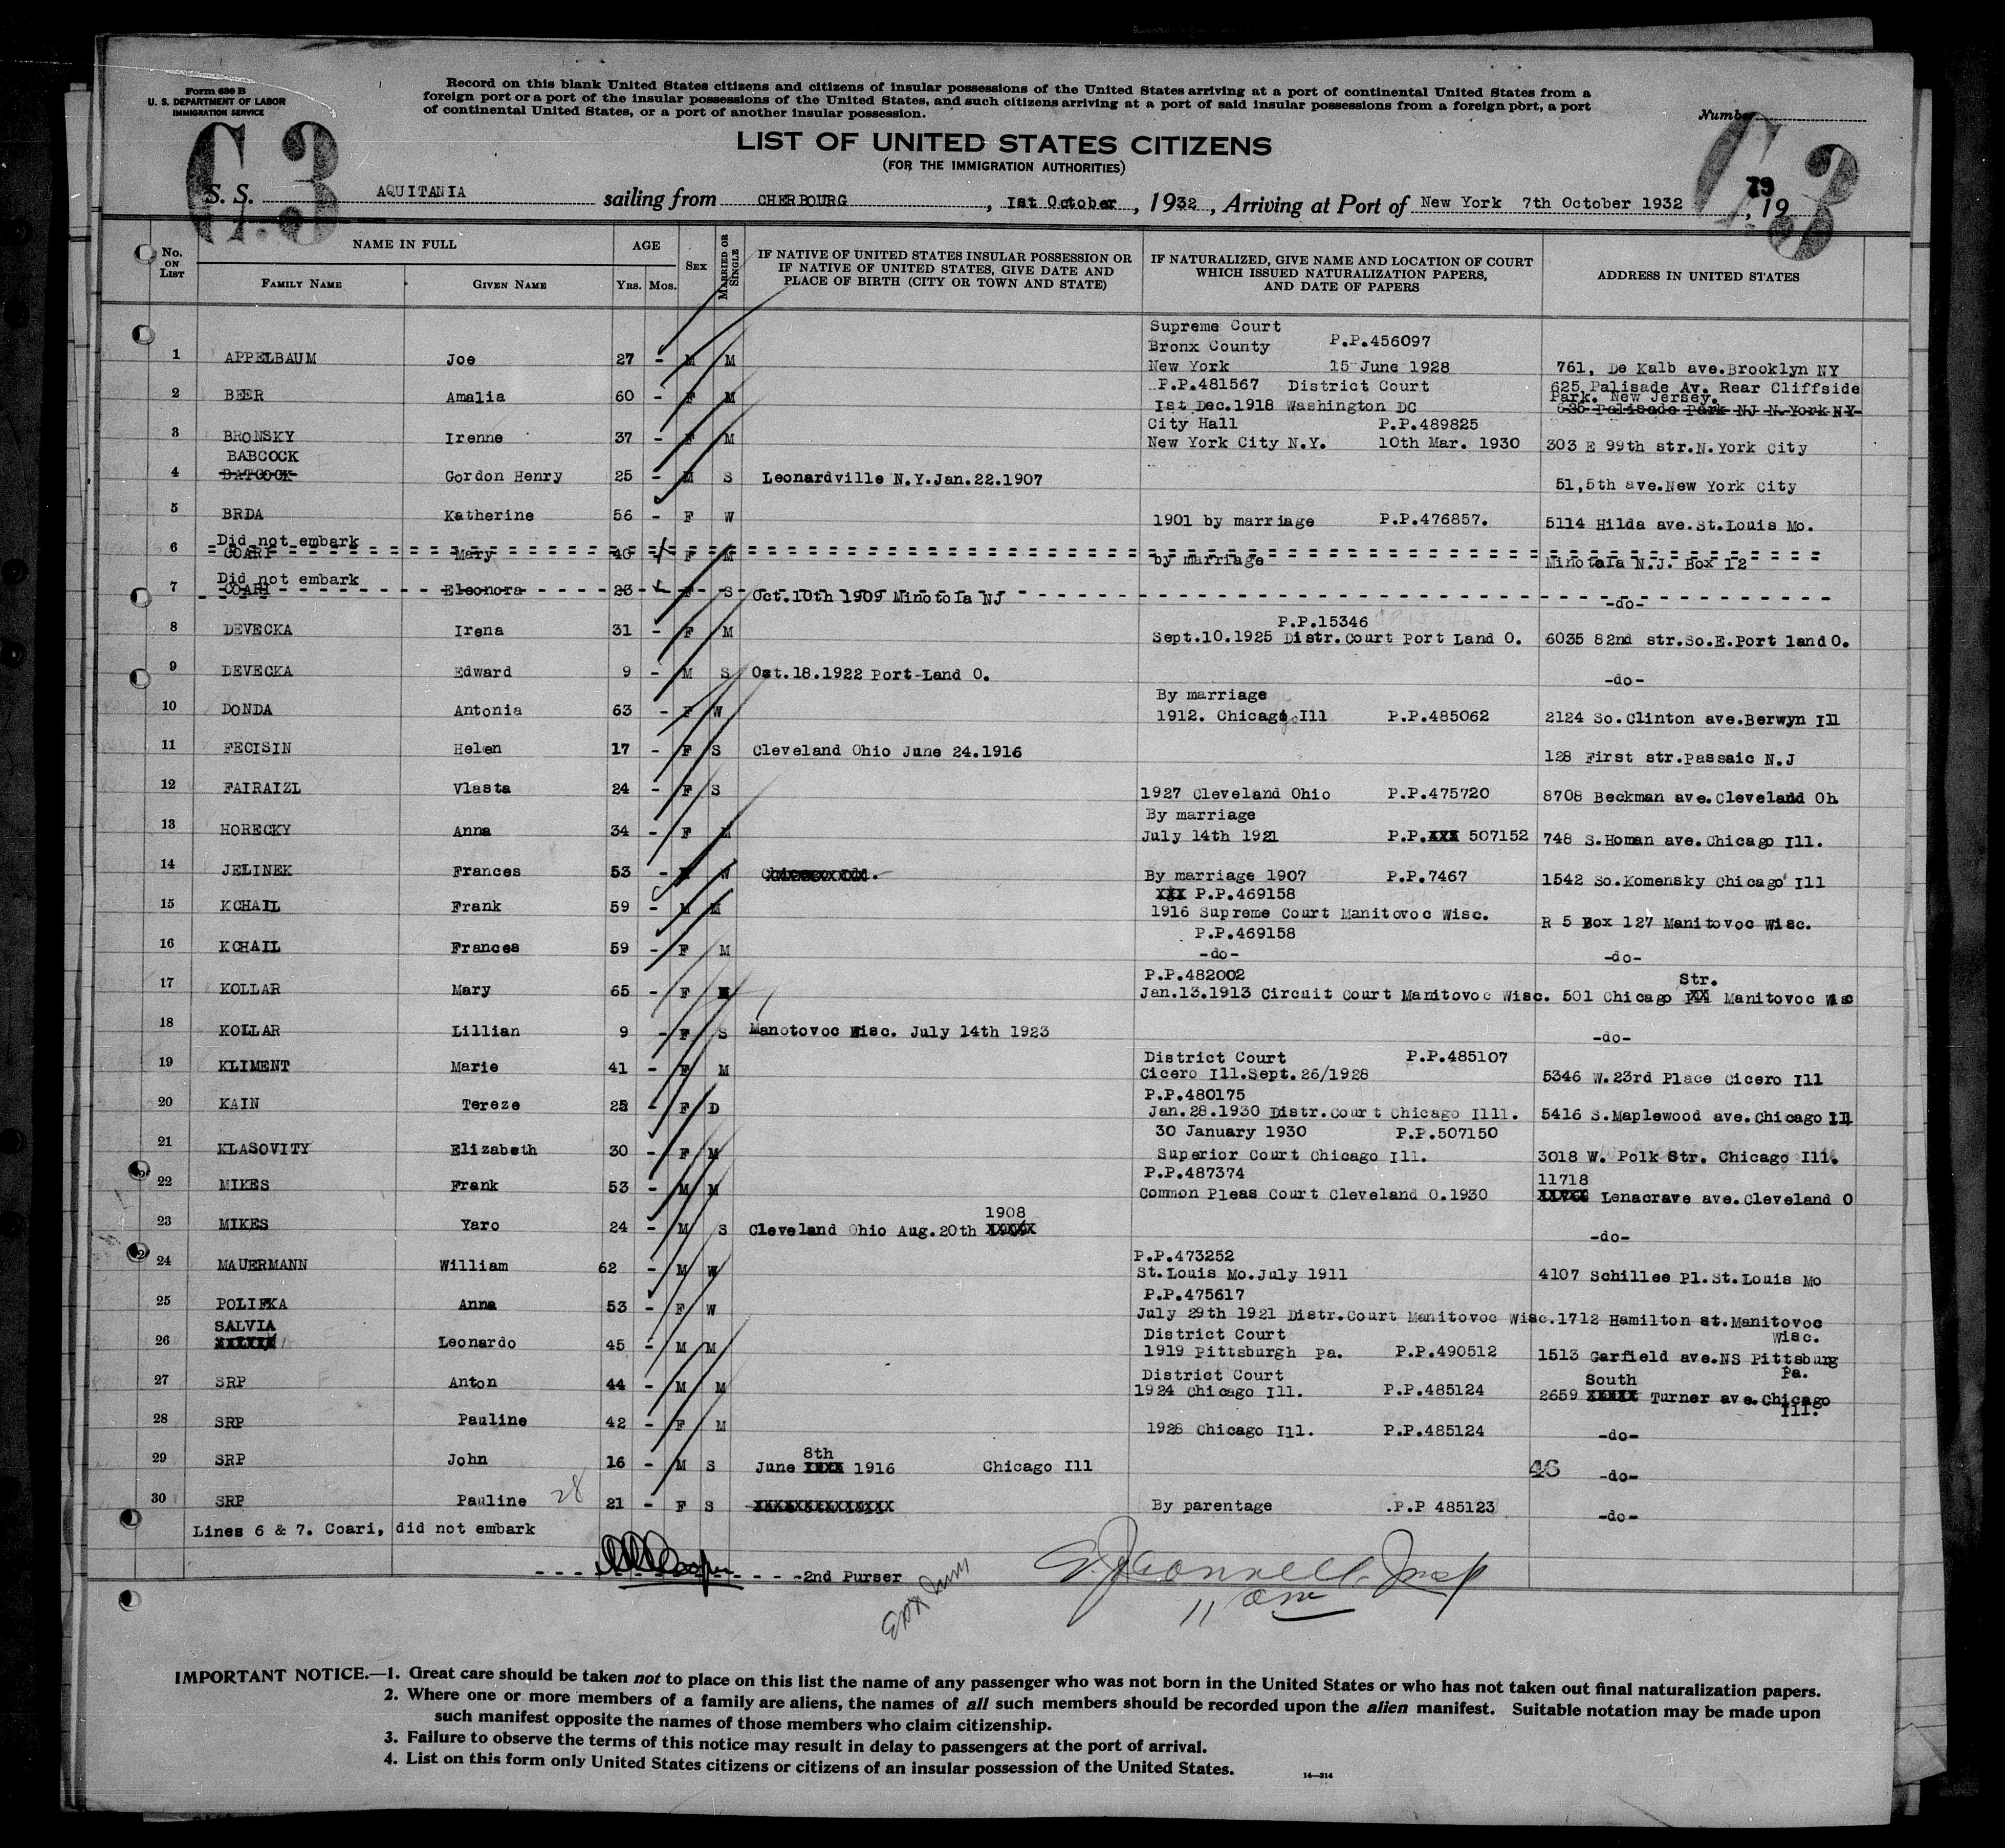 Form 630 B
U. S. DEPARTMENT OF LABOR
IMMIGRATION SERVICE
Record on this blank United States citizens and citizens of insular possessions of the United States arriving at a port of continental United States from a
foreign port or a port of the insular possessions of the United States, and such citizens arriving at a port of said insular possessions from a foreign port, a port
of continental United States, or a port of another insular possession.
Number
LIST OF UNITED STATES CITIZENS
(FOR THE IMMIGRATION AUTHORITIES)
C3 C3
79
S. S. AQUITANIA sailing from CHERBOURG, 1st October, 1932, Arriving at Port of New York 7th October 1932, 19
No. ON LIST NAME IN FULL AGE SEX MARRIED OR SINGLE IF NATIVE OF UNITED STATES INSULAR POSSESSION OR IF NATIVE OF UNITED STATES, GIVE DATE AND PLACE OF BIRTH (CITY OR TOWN AND STATE) IF NATURALIZED, GIVE NAME AND LOCATION OF COURT WHICH ISSUED NATURALIZATION PAPERS, AND DATE OF PAPERS ADDRESS IN UNITED STATES
FAMILY NAME GIVEN NAME YRS. MOS.
Supreme Court
Bronx County P.P.456097
1 APPELBAUM Joe 27 - M M New York 15 June 1928 761, De Kalb ave.Brooklyn NY
P.P.481567 District Court 625 Palisade Av. Rear Cliffside
Park. New Jersey.
2 BEER Amalia 60 - F M 1st Dec.1918 Washington DC 636 Palisade Park NJ N.York NY
City Hall P.P.489825
3 BRONSKY Irenne 37 - F M New York City N.Y. 10th Mar. 1930 303 E 99th str.N.York City
BABCOCK
4 BATCOCK Gordon Henry 25 - M S Leonardville N.Y.Jan.22.1907 51,5th ave.New York City
5 BRDA Katherine 56 - F W 1901 by marriage P.P.476857. 5114 Hilda ave.St.Louis Mo.
Did not embark
6 COARI Mary 40 - F M by marriage Minotola N.J. Box 12
Did not embark
7 COARI Eleonora 23 - F S Oct.10th 1909 Minotola NJ -do-
P.P.15346
8 DEVECKA Irena 31 - F M Sept.10.1925 Distr.Court Port Land O. 6035 82nd str.So.E.Port land O.
9 DEVECKA Edward 9 - M S Oct.18.1922 Port-Land O. -do-
By marriage
10 DONDA Antonia 63 - F W 1912. Chicago Ill P.P.485062 2124 So.Clinton ave.Berwyn Ill
11 FECISIN Helen 17 - F S Cleveland Ohio June 24.1916 128 First str.Passaic N.J
12 FAIRAIZL Vlasta 24 - F S 1927 Cleveland Ohio P.P.475720 8708 Beckman ave.Cleveland Oh
By marriage
13 HORECKY Anna 34 - F M July 14th 1921 P.P.XXX 507152 748 S.Homan ave.Chicago Ill.
14 JELINEK Frances 53 - F W By marriage 1907 P.P.7467 1542 So.Komensky Chicago Ill
XXX P.P.469158
15 KCHAIL Frank 59 - M M 1916 Supreme Court Manitovoc Wisc. R 5 Box 127 Manitovoc Wisc.
P.P.469158
16 KCHAIL Frances 59 - F M -do- -do-
P.P.482002 Str.
17 KOLLAR Mary 65 - F Jan.13.1913 Circuit Court Manitovoc Wisc. 501 Chicago XX Manitovoc Wisc
18 KOLLAR Lillian 9 - F S Manotovoc Wisc. July 14th 1923 -do-
District Court P.P.485107
19 KLIMENT Marie 41 - F M Cicero Ill.Sept.26/1928 5346 W.23rd Place Cicero Ill
P.P.480175
20 KAIN Tereze 25 - F D Jan.28.1930 Distr.Court Chicago Illl. 5416 S.Maplewood ave.Chicago Ill
30 January 1930 P.P.507150
21 KLASOVITY Elizabeth 30 - F M Superior Court Chicago Ill. 3018 W. Polk Str. Chicago Ill.
P.P.487374 11718
22 MIKES Frank 53 - M M Common Pleas Court Cleveland O.1930 Lenacrave ave.Cleveland O
1908
23 MIKES Yaro 24 - M S Cleveland Ohio Aug.20th XXXXX -do-
P.P.473252
24 MAUERMANN William 62 - M W St.Louis Mo.July 1911 4107 Schillee Pl.St.Louis Mo
P.P.475617
25 POLIFKA Anna 53 - F W July 29th 1921 Distr.Court Manitovoc Wisc.1712 Hamilton st.Manitovoc
Wisc.
SALVIA District Court
26 XXXXXX Leonardo 45 - M M 1919 Pittsburgh Pa. P.P.490512 1513 Garfield ave.NS Pittsburg
Pa.
District Court South
27 SRP Anton 44 - M M 1924 Chicago Ill. P.P.485124 2659 XXXXX Turner ave.Chicago
Ill.
28 SRP Pauline 42 - F M 1928 Chicago Ill. P.P.485124 -do-
8th
29 SRP John 16 - M S June XXXX 1916 Chicago Ill 46 -do-
30 SRP Pauline 28 21 - F S XXXXXXXXXXXXXXX By parentage .P.P 485123 -do-
Lines 6 & 7. Coari, did not embark
-2nd Purser
11 am
IMPORTANT NOTICE.—1. Great care should be taken not to place on this list the name of any passenger who was not born in the United States or who has not taken out final naturalization papers.
2. Where one or more members of a family are aliens, the names of all such members should be recorded upon the alien manifest. Suitable notation may be made upon
such manifest opposite the names of those members who claim citizenship.
3. Failure to observe the terms of this notice may result in delay to passengers at the port of arrival.
4. List on this form only United States citizens or citizens of an insular possession of the United States.
14—214